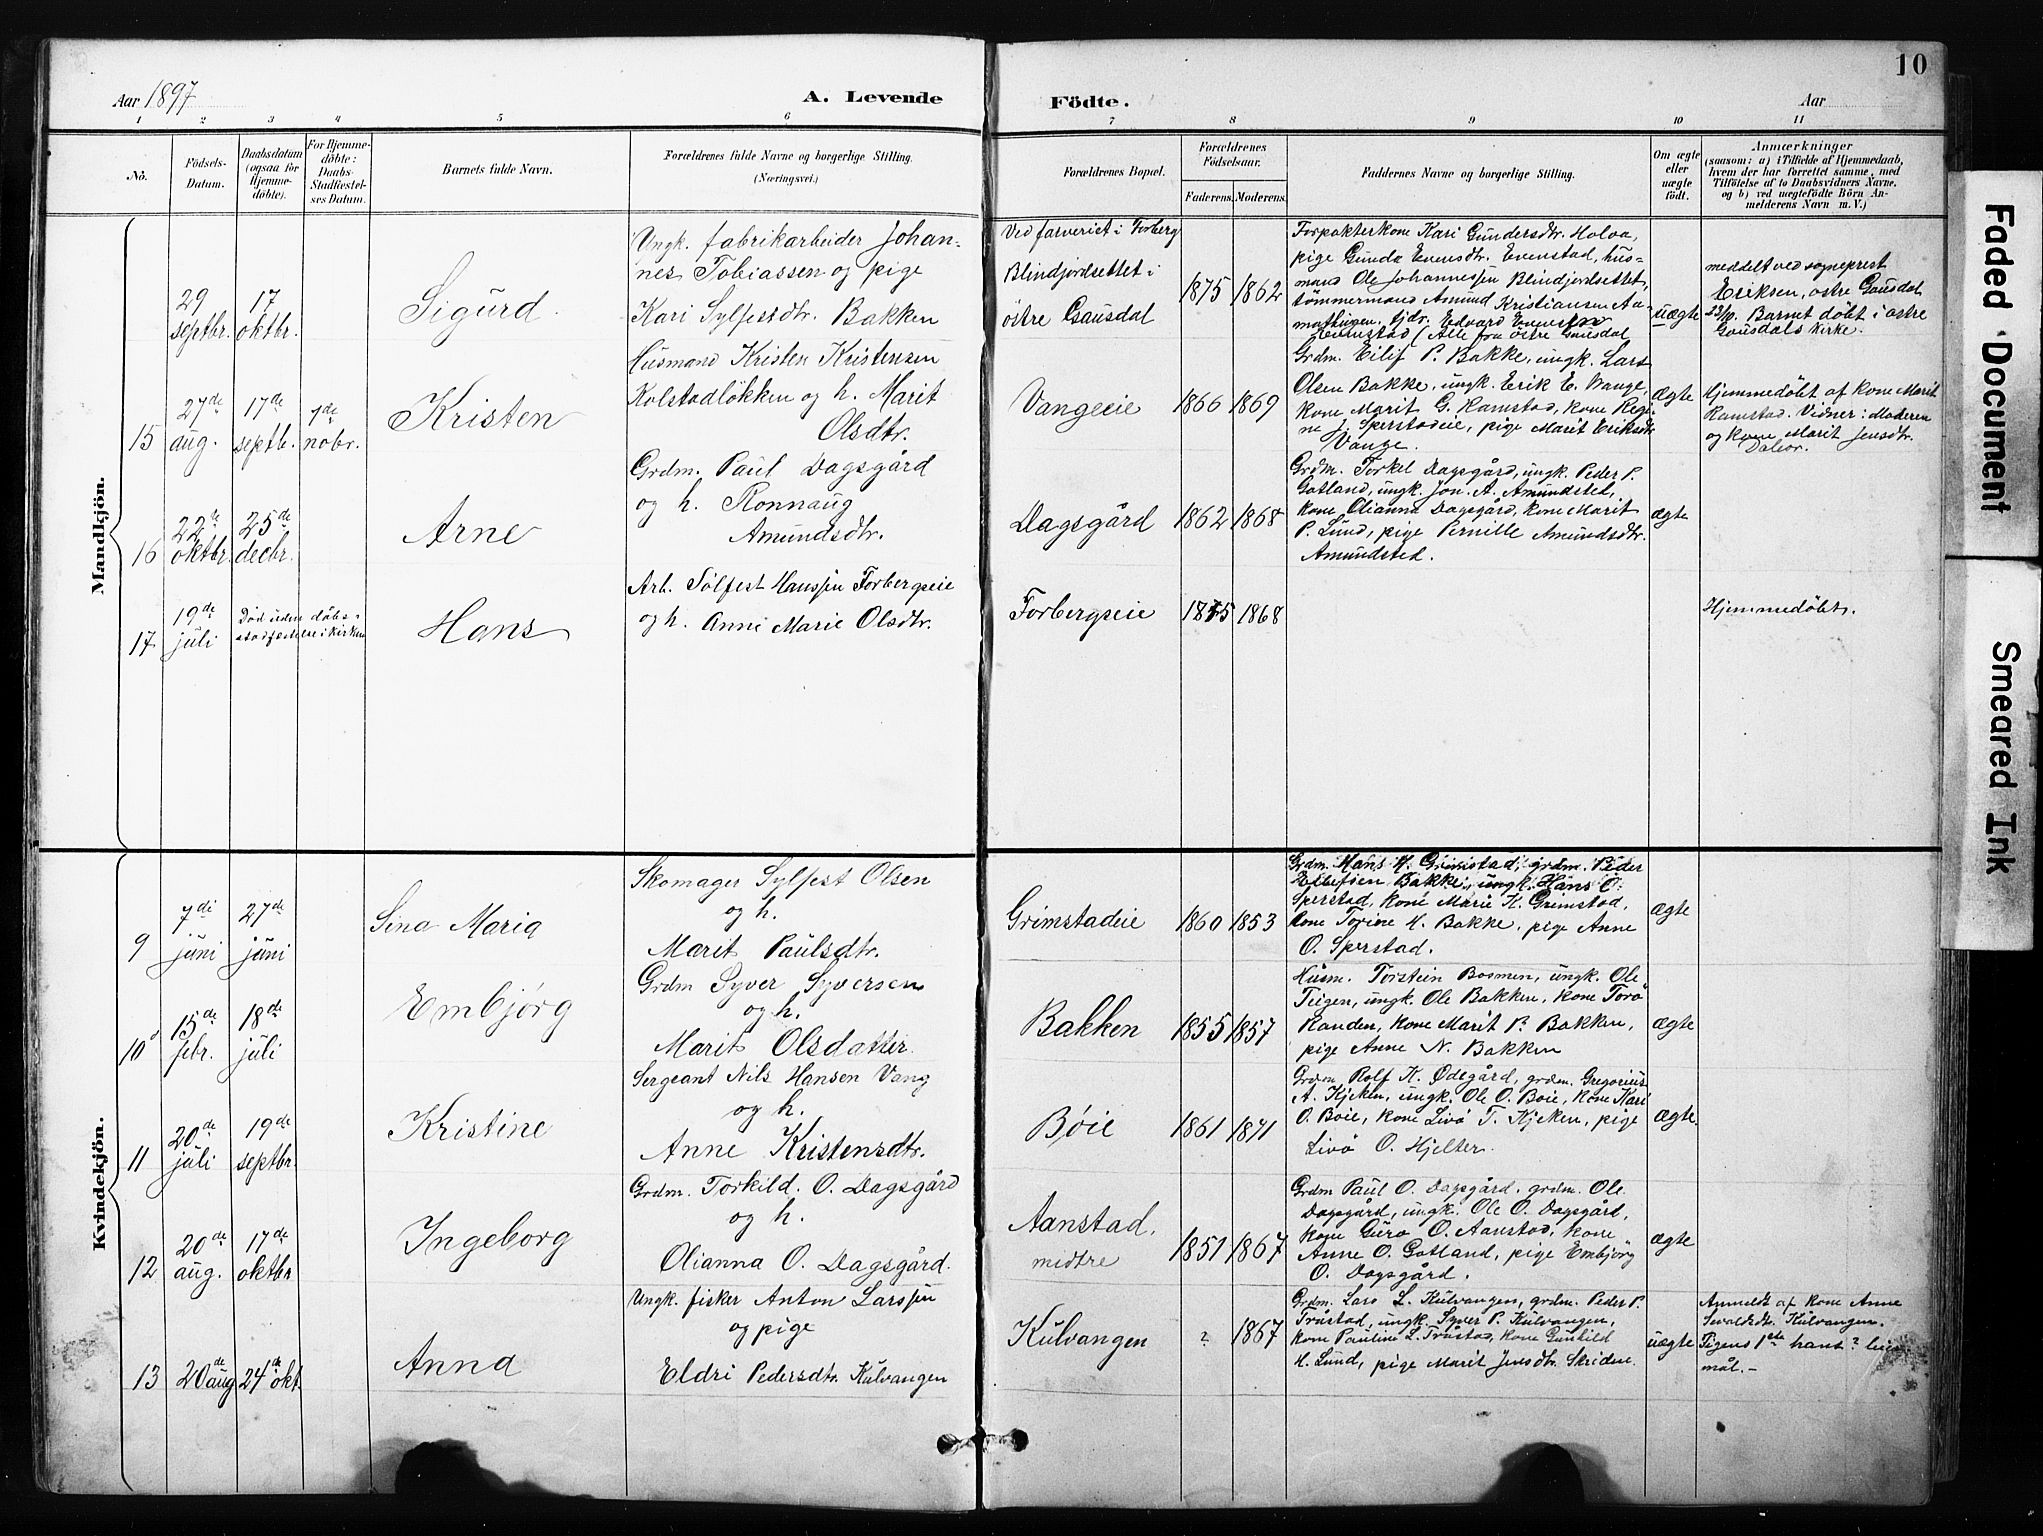 10
Aar 1897
A. Levende
Födte.
Aar
1 2 3 4 5 6 7 8 9 10 11
No.
Födsels-
Datum.
Daabsdatum
(ogsaa för
Hjemme-
döbte).
For Hjemme-
döbte:
Daabs-
Stadfæstel-
ses Datum.
Barnets fulde Navn.
Forældrenes fulde Navne og borgerlige Stilling.
(Næringsvei.)
Forældrenes Bopæl.
Forældrenes
Födselsaar.
Faderens.
Moderens.
Faddernes Navne og borgerlige Stilling.
Om ægte
eller
uægte
födt.
Anmærkninger
(saasom: a) i Tilfælde af Hjemmedaab,
hvem der har forrettet samme, med
Tilföielse af to Daabsvidners Navne.
og b) ved uægtefödte Börn An-
melderens Navn m. V.)
Mandkjön.
29
septbr.
17
oktbr.
Sigurd
Ungk. fabrikarbeider Johan-
nes Tobiassen og pige
Kari Sylfestdtr. Bakken
Ved farveriet i Forberg
Blindjordsettet i
östre Gausdal
1875
1862
Forpakterkone Kari Gundersdtr. Holoa,
pige Gunda Evensdtr. Evenstad, hus-
mand Ole Johannessen Blindjordsettet,
tömmermand Amund Kristiansen Aa-
mothugen, tjdr. Edvard Evensen
Evenstad (Alle fra östre Gausdal
uægte
meddelt ved sogneprest
Eriksen, östre Gausdal
Barnet döbt i östre
Gausdals kirke.
15
27de
aug.
17de
septb.
7de
nobr.
Kristen
Husmand Kristen Kristensen
Kolstadløkken og h. Marit
Olsdtr.
Vangeeie
1866
1869
Grdm. Eilif P. Bakke, ungk. Lars
Olsen Bakke, ungk. Erik E. Vange,
kone Marit G. Ramstad, kone Regi-
ne J. Sperstadeie, pige Marit Eriksdtr
Vange.
ægte
Hjemmedöbt af kone Marit
Ramstad. Vidner: Moderen
og kone Marit Jensdtr.
16
22de
oktbr.
25de
decbr.
Arne
Grdm. Paul Dagsgård
og h. Ronnaug
Amundsdtr.
Dagsgård
1862
1868
Grdm. Torkel Dagsgård, ungk. Peder P.
Gotland, ungk. Jon. A. Amundsted,
kone Olianna Dagsgård, kone Marit
P. Lund, pige Pernille Amundsdtr.
Amundsted.
ægte
17
19de
juli
Död uden döbs-
stadfestelse i kirken
Hans
Arb. Sölfest Hanssen Forbergseie
og h. Anne Marie Olsdtr.
Forbergseie
1875
1868
Hjemmedöbt.
Kvindekjön.
9
7di
juni
27de
juni
Sina Maria
Skomager Sylfest Olsen
og h.
Marit Paulsdtr.
Grimstadeie
1860
1853
Grdm. Hans H. Grimstad, grdm. Peder
Bakke, ungk. Hans O.
Sperstad, kone Marie K. Grimstad,
kone Torine H. Bakke, pige Anne
O. Sperstad.
ægte
10
15de
febr.
18de
juli
Embjörg
Grdm Syver Syversen
og h.
Marit Olsdatter.
Bakken
1855
1857
Husm. Torstein Bosmen, ungk. Ole
Teigen, ungk. Ole Bakken, kone Torø
Randen, kone Marit P. Bakken,
pige Anne N. Bakken
ægte
11
20de
juli
19de
septbr.
Kristine
Sergeant Nils Hansen Vang
og h.
Anne Kristensdtr.
Bøie
1861
1871
Grdm Rolf K. Ødegård, grdm. Gregorius
A. Kjeken, ungk. Ole O. Boie, kone Kari
O. Boie, kone Livø T. Kjeken, pige
Livø O. Hjelter.
ægte.
12
20de
aug.
17de
oktbr
Ingeborg
Grdm. Torkild. O. Dagsgård
og h.
Olianna O. Dagsgård.
Aanstad,
midtre
1851
1867
Grdm Paul O. Dagsgård. grdm. Ole
Dagsgård, ungk. Ole O. Dagsgård,
kone Guro O. Aanstad, kone
Anne O. Gotland, pige Embjörg
O. Dagsgård.
ægte
13
20de aug
24de okt.
Anna
Ungk. fisker Anton Larssen
og pige
Eldri Pedersdtr. Kulvangen
Kulvangen
?
1867
Grdm. Lars L. Kulvangen, grdm. Peder P.
Tråstad, ungk. Syver P. Kulvangen,
kone Pauline L. Tråstad, kone Gunhild
H. Lund, pige Marit Jensdtr. Skriden.
uægte
Anmeldt af kone Anne
Sevaldsdtr. Kulvangen.
Pigens 1ste hans ? leier-
mål.-
Faded Document
Smeared Ink